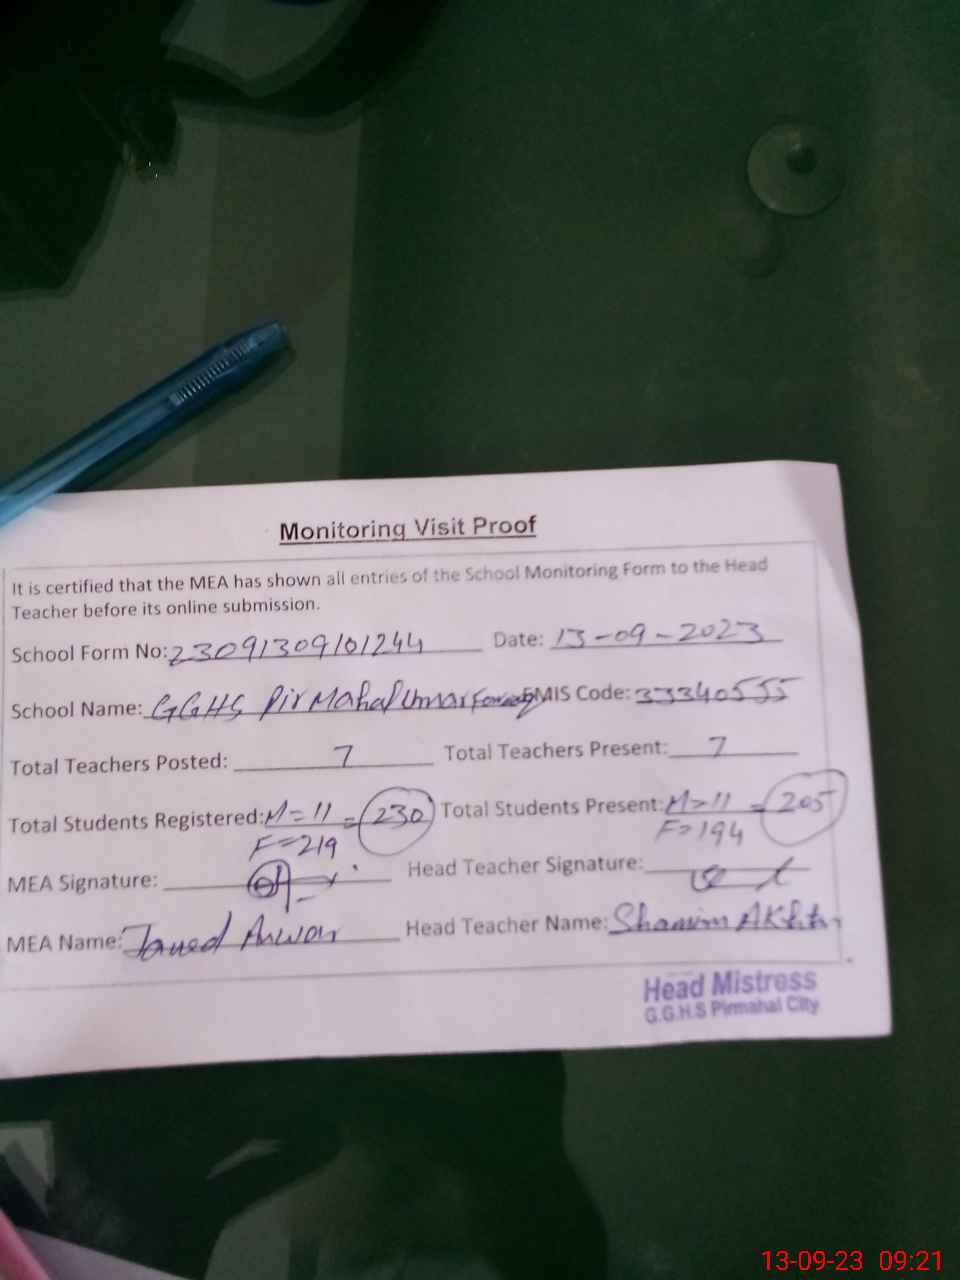 Monitoring Visit Proof
It is certified that the MEA has shown all entries of the School Monitoring Form to the Head
Teacher before its online submission.
School Form No: 23091309101244 Date: 13-09-2023
School Name: GGHS Pir Mahal Umar EMIS Code: 33340555
Total Teachers Posted: 7 Total Teachers Present: 7
Total Students Registered: M=11 = 230 Total Students Present: M=11 = 205
F=219 F=194
MEA Signature: Head Teacher Signature:
MEA Name: Javed Anwar Head Teacher Name: Shamim Akhtar
Head Mistress
G.G.H.S Pirmahal City
13-09-23 09:21